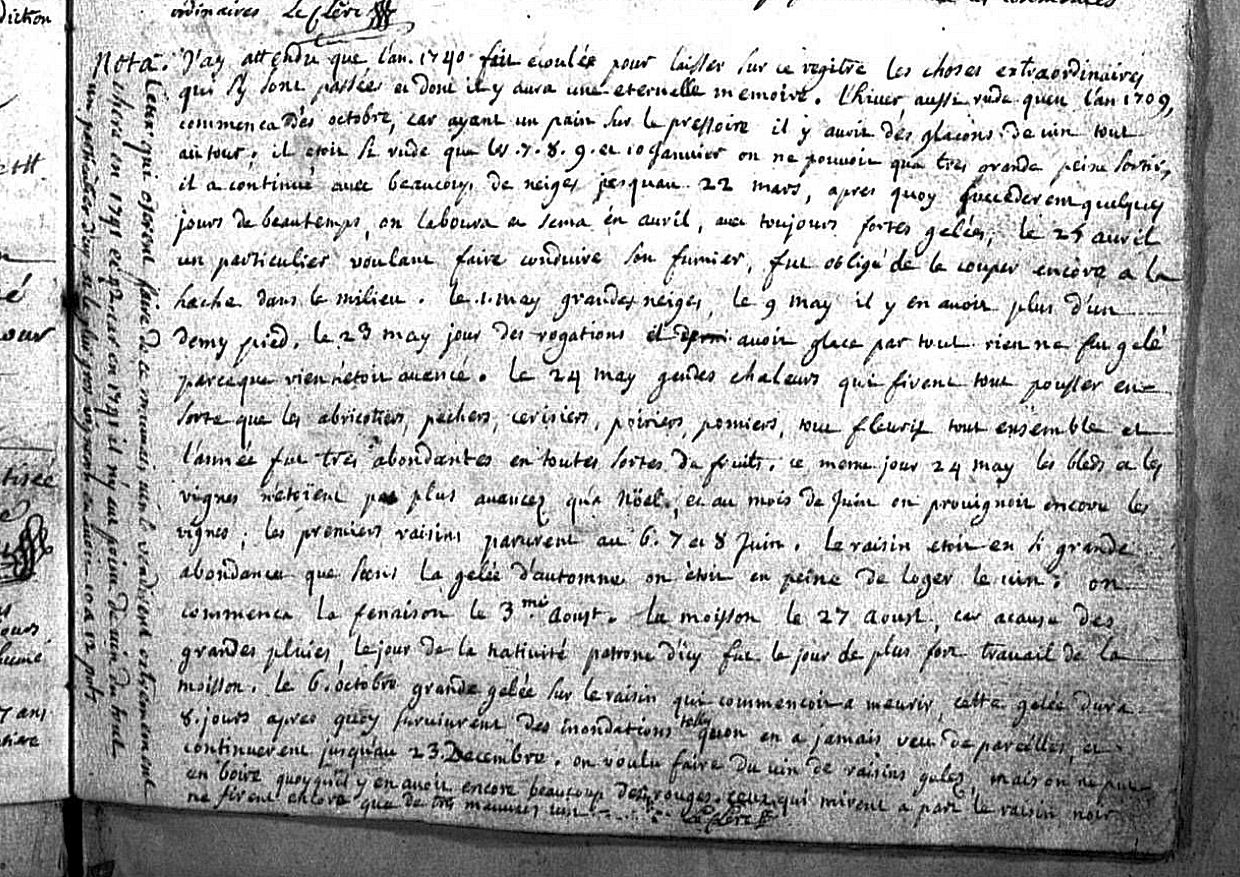 ordinaires Le Clerc
Nota. J'ay attendu que l'an. 1740 fut ecoulée pour laisser sur ce regitre les choses extraordinaires
qui s'y sont passées et dont il y aura une eternelle memoire. L'hiver aussi rude qu'en l'an 1709,
commença dès octobre, car ayant un pain sur le pressoire il y avoit des glaçons de vin tout
autour, il etoit si rude que les .7.8.9. et 10 Janvier on ne pouvoit qu'a tres grande peine sortir,
il a continué avec beaucoup de neiges jusquau 22 mars, apres quoy succederent quelques
jours de beautemps, on laboura et sema en avril, avec toujours fortes gelées, le 25 avril
un particulier voulant faire conduire son fumier, fut obligé de le couper encore a la
hache dans le milieu. le .1. may grandes neiges, le 9 may il y en avoit plus d'un
demy pied. le 23 may jour des rogations avoit glace par tout rien ne fut gelé
parceque rien n'etoit avancé. Le 24 may grndes chaleurs qui firent tout pousser en
sorte que les abricotiers, pechers, cerisiers, poiriers, pomiers, tout fleurit tout ensemble et
l'année fut tres abondantes en toutes sortes de fruits. ce meme jour 24 may les bleds et les
vignes n'etoient pas plus avancez qu'a Nöel, et au mois de Juin on provignoit encore les
vignes; les premiers raisins parurent au 6. 7 et 8 Juin. Le raisin etoit en si grande
abondance que sans la gelée d'automne on étoit en peine de loger le vin; on
commenca la fenaison le 3me Aoust. La moisson le 27 Aoust, car acause des
grandes pluies, le jour de la nativité patrone d'icy fut le jour de plus fort travail de la
moisson. Le 6. octobre grande gelée sur le raisin qui commencoit a meurir, cette gelée dura
8. jours apres quoy survinrent des inondations telles qu'on en a jamais veu de pareilles, et
continuerent jusqu'au 23 Decembre. on voulu faire du vin de raisins gelés, mais on ne put
en boire quoyqu'il y en avoit encore beaucoup des rouges. ceux qui mirent a part le raisin noir
ne firent encore que de tres mauvais vin. Le Clerc
Ceux qui oserent faire de ce mauvais vin le vendirent extremement
chere en 1741 et 42. car en 1741 il n'y eut point de vin du tout
un particulier d'icy et le plus gros vigneron en 10 a 12 pots